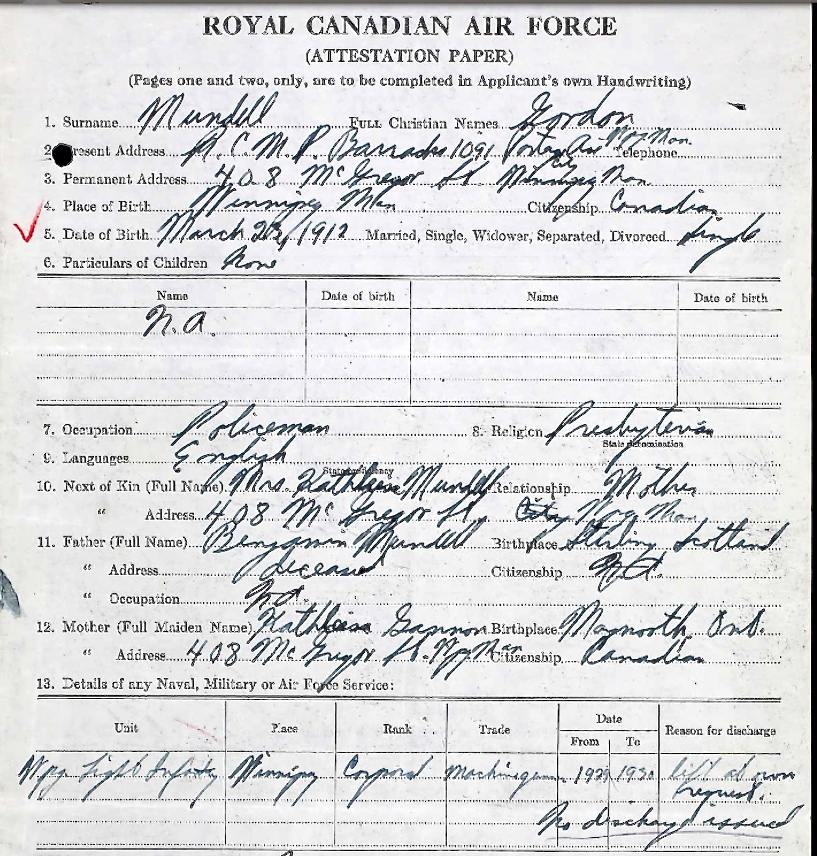 ROYAL CANADIAN AIR FORCE
(ATTESTATION PAPER)
(Pages one and two, only, are to be completed in Applicant's own Handwriting)
1. Surname Mundell FULL Christian Names Gordon
2. Present Address R.C.M.P. Barracks 1091 Portage Ave Wpg Man. Telephone
3. Permanent Address 408 McGregor St Winnipeg Man.
4. Place of Birth Winnipeg Man Citizenship Canadian
5. Date of Birth March 23, 1912 Married, Single, Widower, Separated, Divorced Single
6. Particulars of Children None
Name Date of birth Name Date of birth
N.A.
7. Occupation Policeman 8. Religion Presbyterian
State denomination
9. Languages English
State proficiency
10. Next of Kin (Full Name) Mrs. Kathleen Mundell Relationship Mother
" Address 408 McGregor St, City Wpg Man
11. Father (Full Name) Benjamin Mundell Birthplace Stirling Scotland
" Address deceased Citizenship N.A.
" Occupation N.A.
12. Mother (Full Maiden Name) Kathleen Gannon Birthplace Maynooth, Ont.
" Address 408 McGregor St. Wpg Man Citizenship Canadian
13. Details of any Naval, Military or Air Force Service:
Unit Place Rank Trade Date From To Reason for discharge
Wpg Light Infantry Winnipeg Corporal Machinegun 1929 1930 left at own
request.
No discharge issued